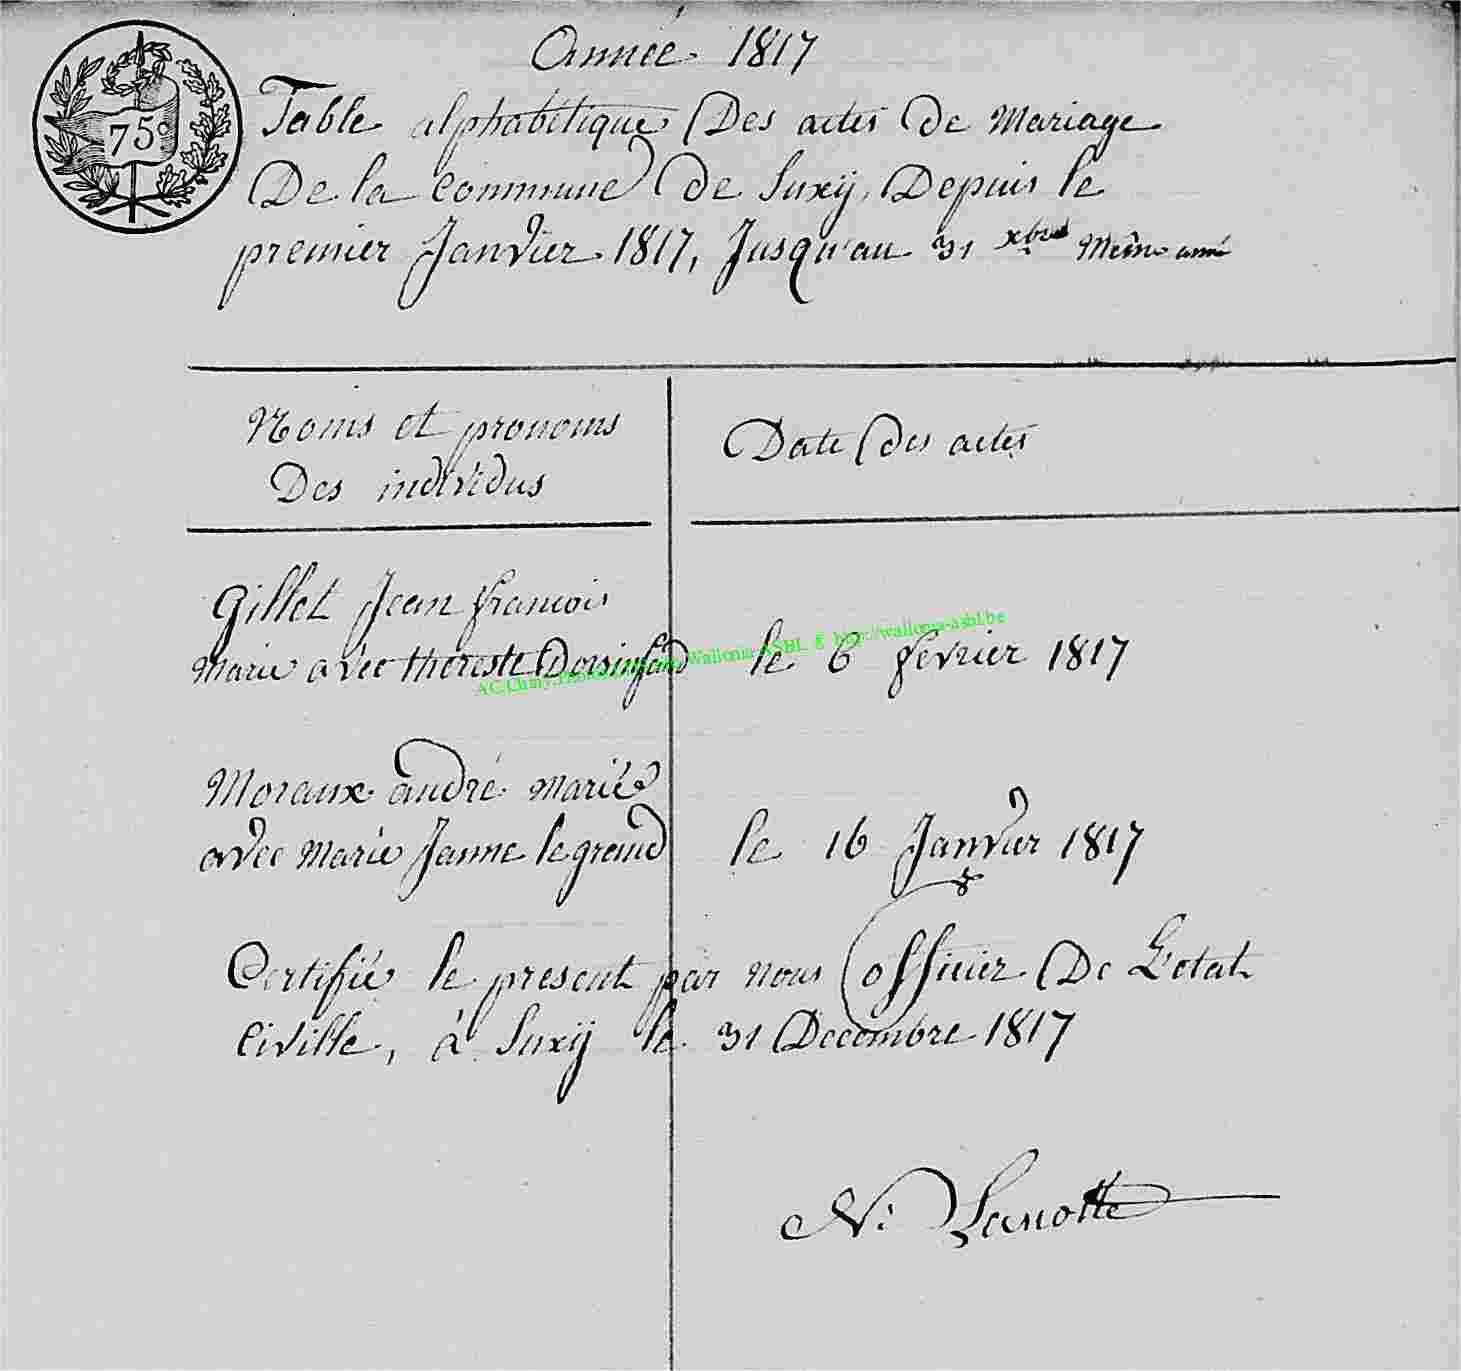 Année 1817
75c
Table alphabétique Des actes de Mariage
De la Commune de Suxÿ, Depuis le
premier Janvier 1817, Jusqu'au 31 xbre Même anné
Noms et pronoms
Des individus
Date des actes
Gillet Jean francois
Marié avec thereste Dorsinfand
le 6 fevrier 1817
Moraux andré Marié
avec Marie Janne legrand
le 16 Janvier 1817
Certifié le present par nous officier De L'etat
Civille, à Suxÿ le 31 Decembre 1817
N: Lanotte
Wallonia ASBL © http://wallonia-asbl.be